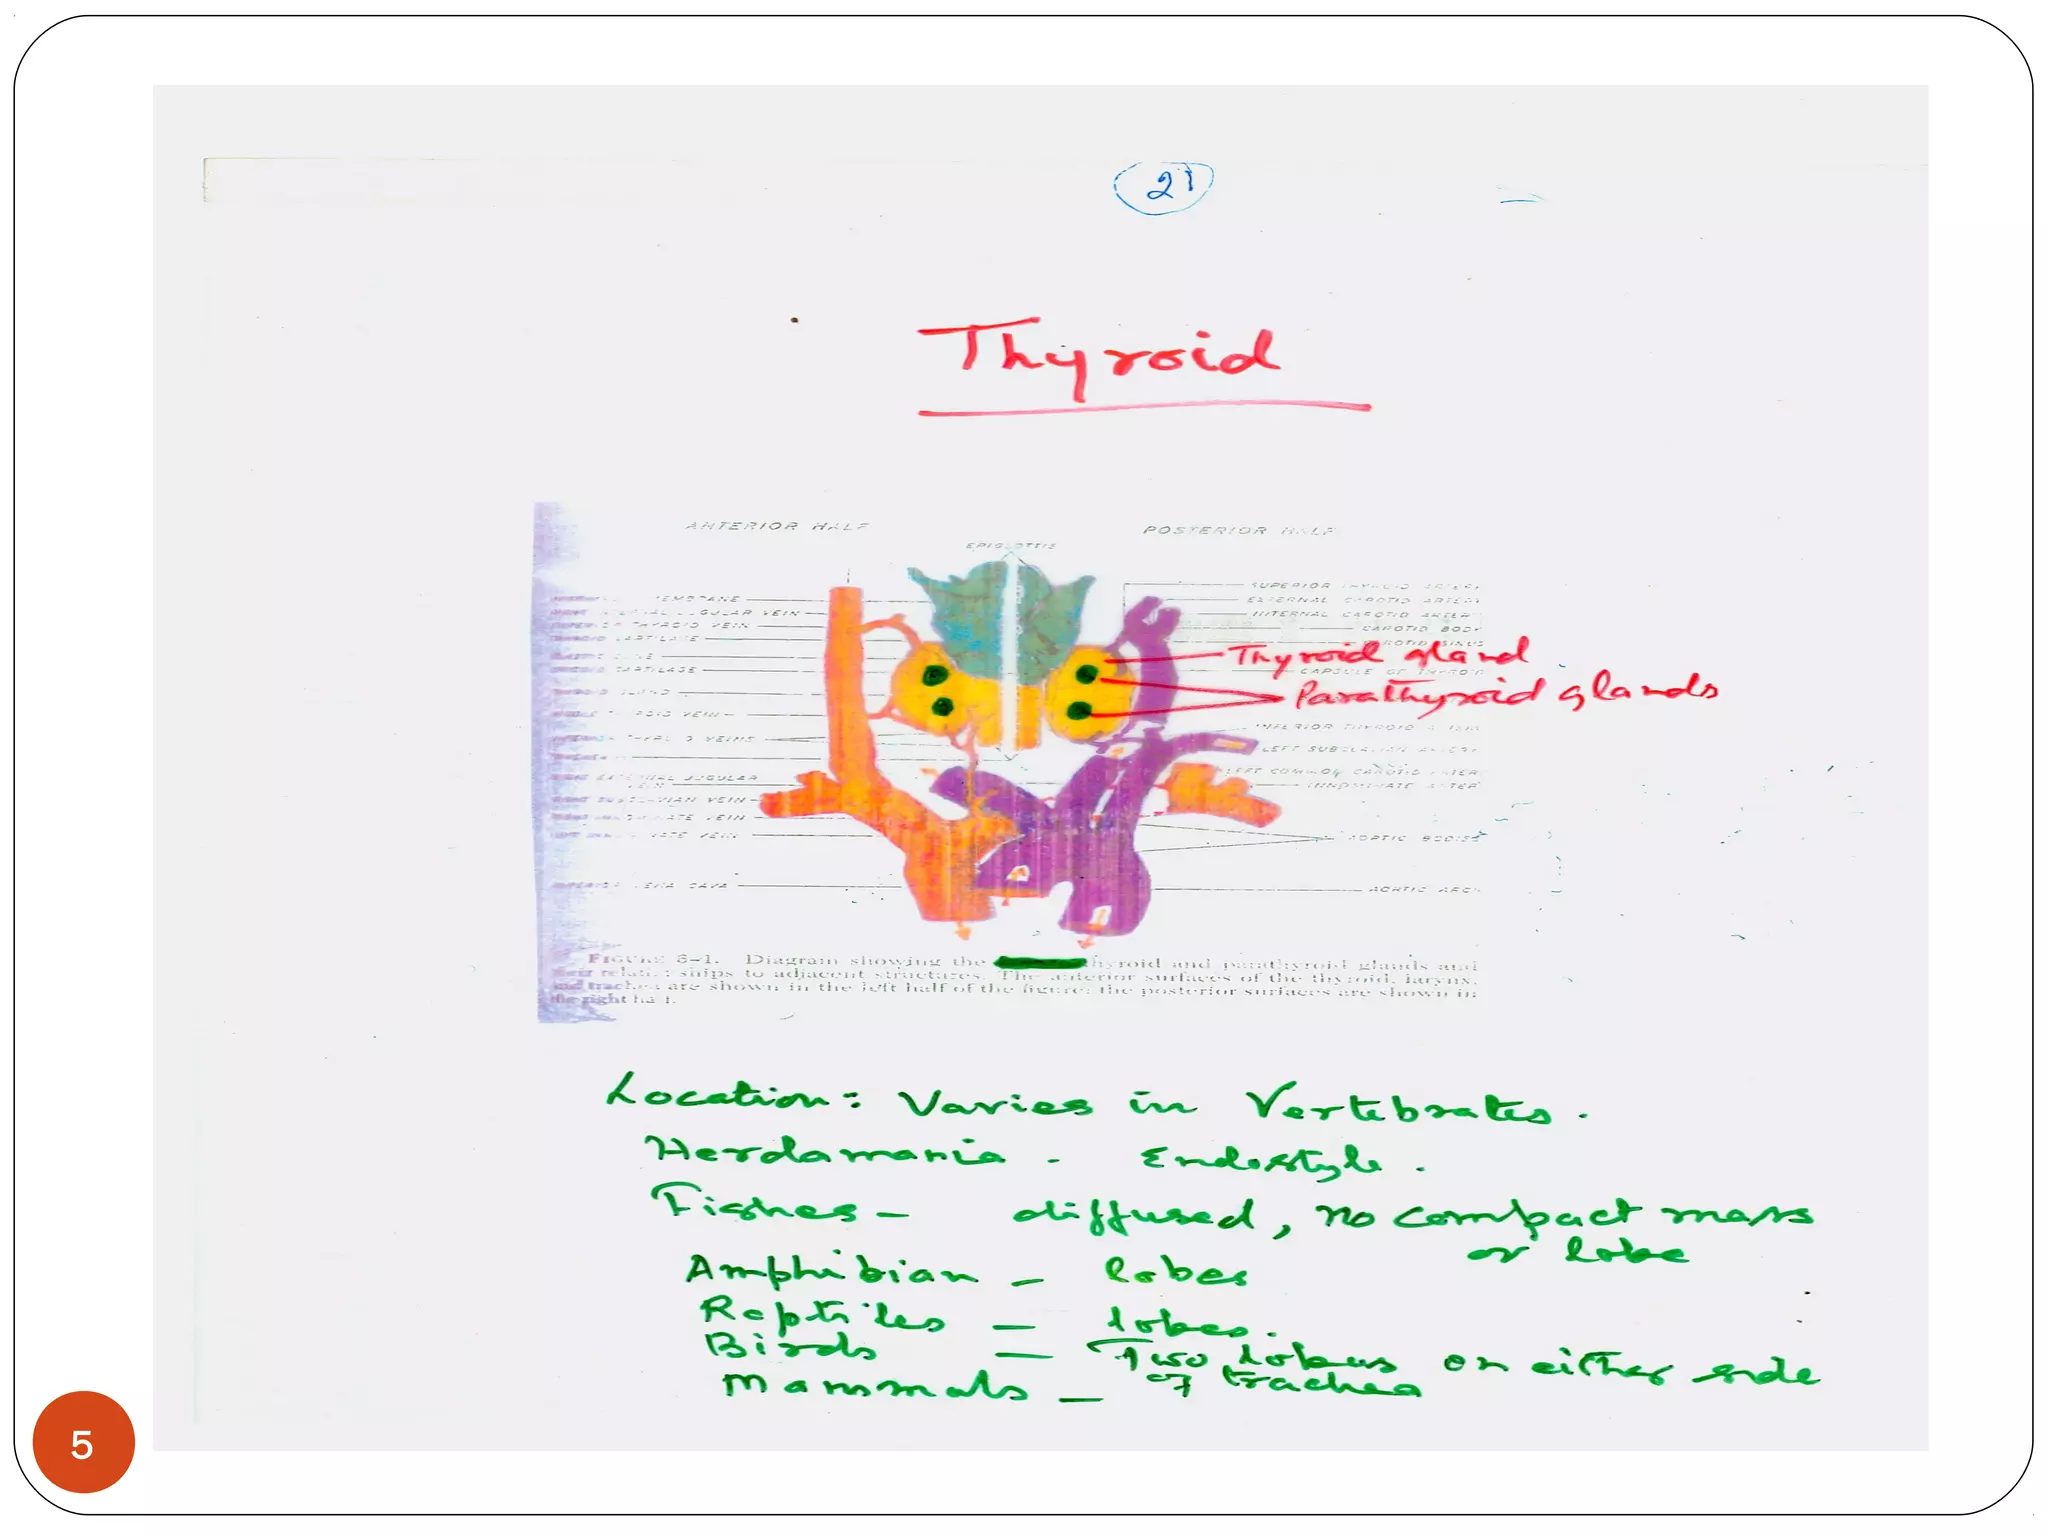 21
Thyroid
ANTERIOR HALF
POSTERIOR HALF
EPIGLOTTIS
SUPERIOR THYROID ARTERY
EXTERNAL CAROTID ARTERY
INTERNAL CAROTID ARTERY
CAROTID BODY
CAROTID SINUS
Thyroid gland
CAPSULE OF THYROID
Parathyroid glands
INFERIOR THYROID
LEFT SUBCLAVIAN ARTERY
LEFT COMMON CAROTID ARTER
INNOMINATE ARTER
AORTIC BODIES
AORTIC ARCH
JUGULAR VEIN
THYROID VEIN
CARTILAGE
CARTILAGE
THYROID GLAND
THYROID VEIN
VEINS
JUGULAR
VEIN
VEIN
VEIN
VEIN
VENA CAVA
FIGURE 6-1. Diagram showing the thyroid and parathyroid glands and
their relationships to adjacent structures. The anterior surfaces of the thyroid, larynx,
and trachea are shown in the left half of the figure; the posterior surfaces are shown in
the right half.
Location: Varies in Vertebrates.
Herdamania - Endostyle.
Fishes - diffused, no compact mass
or lobe
Amphibian - lobes
Reptiles - lobes.
Birds - Two lobes on either side
Mammals - of trachea
5